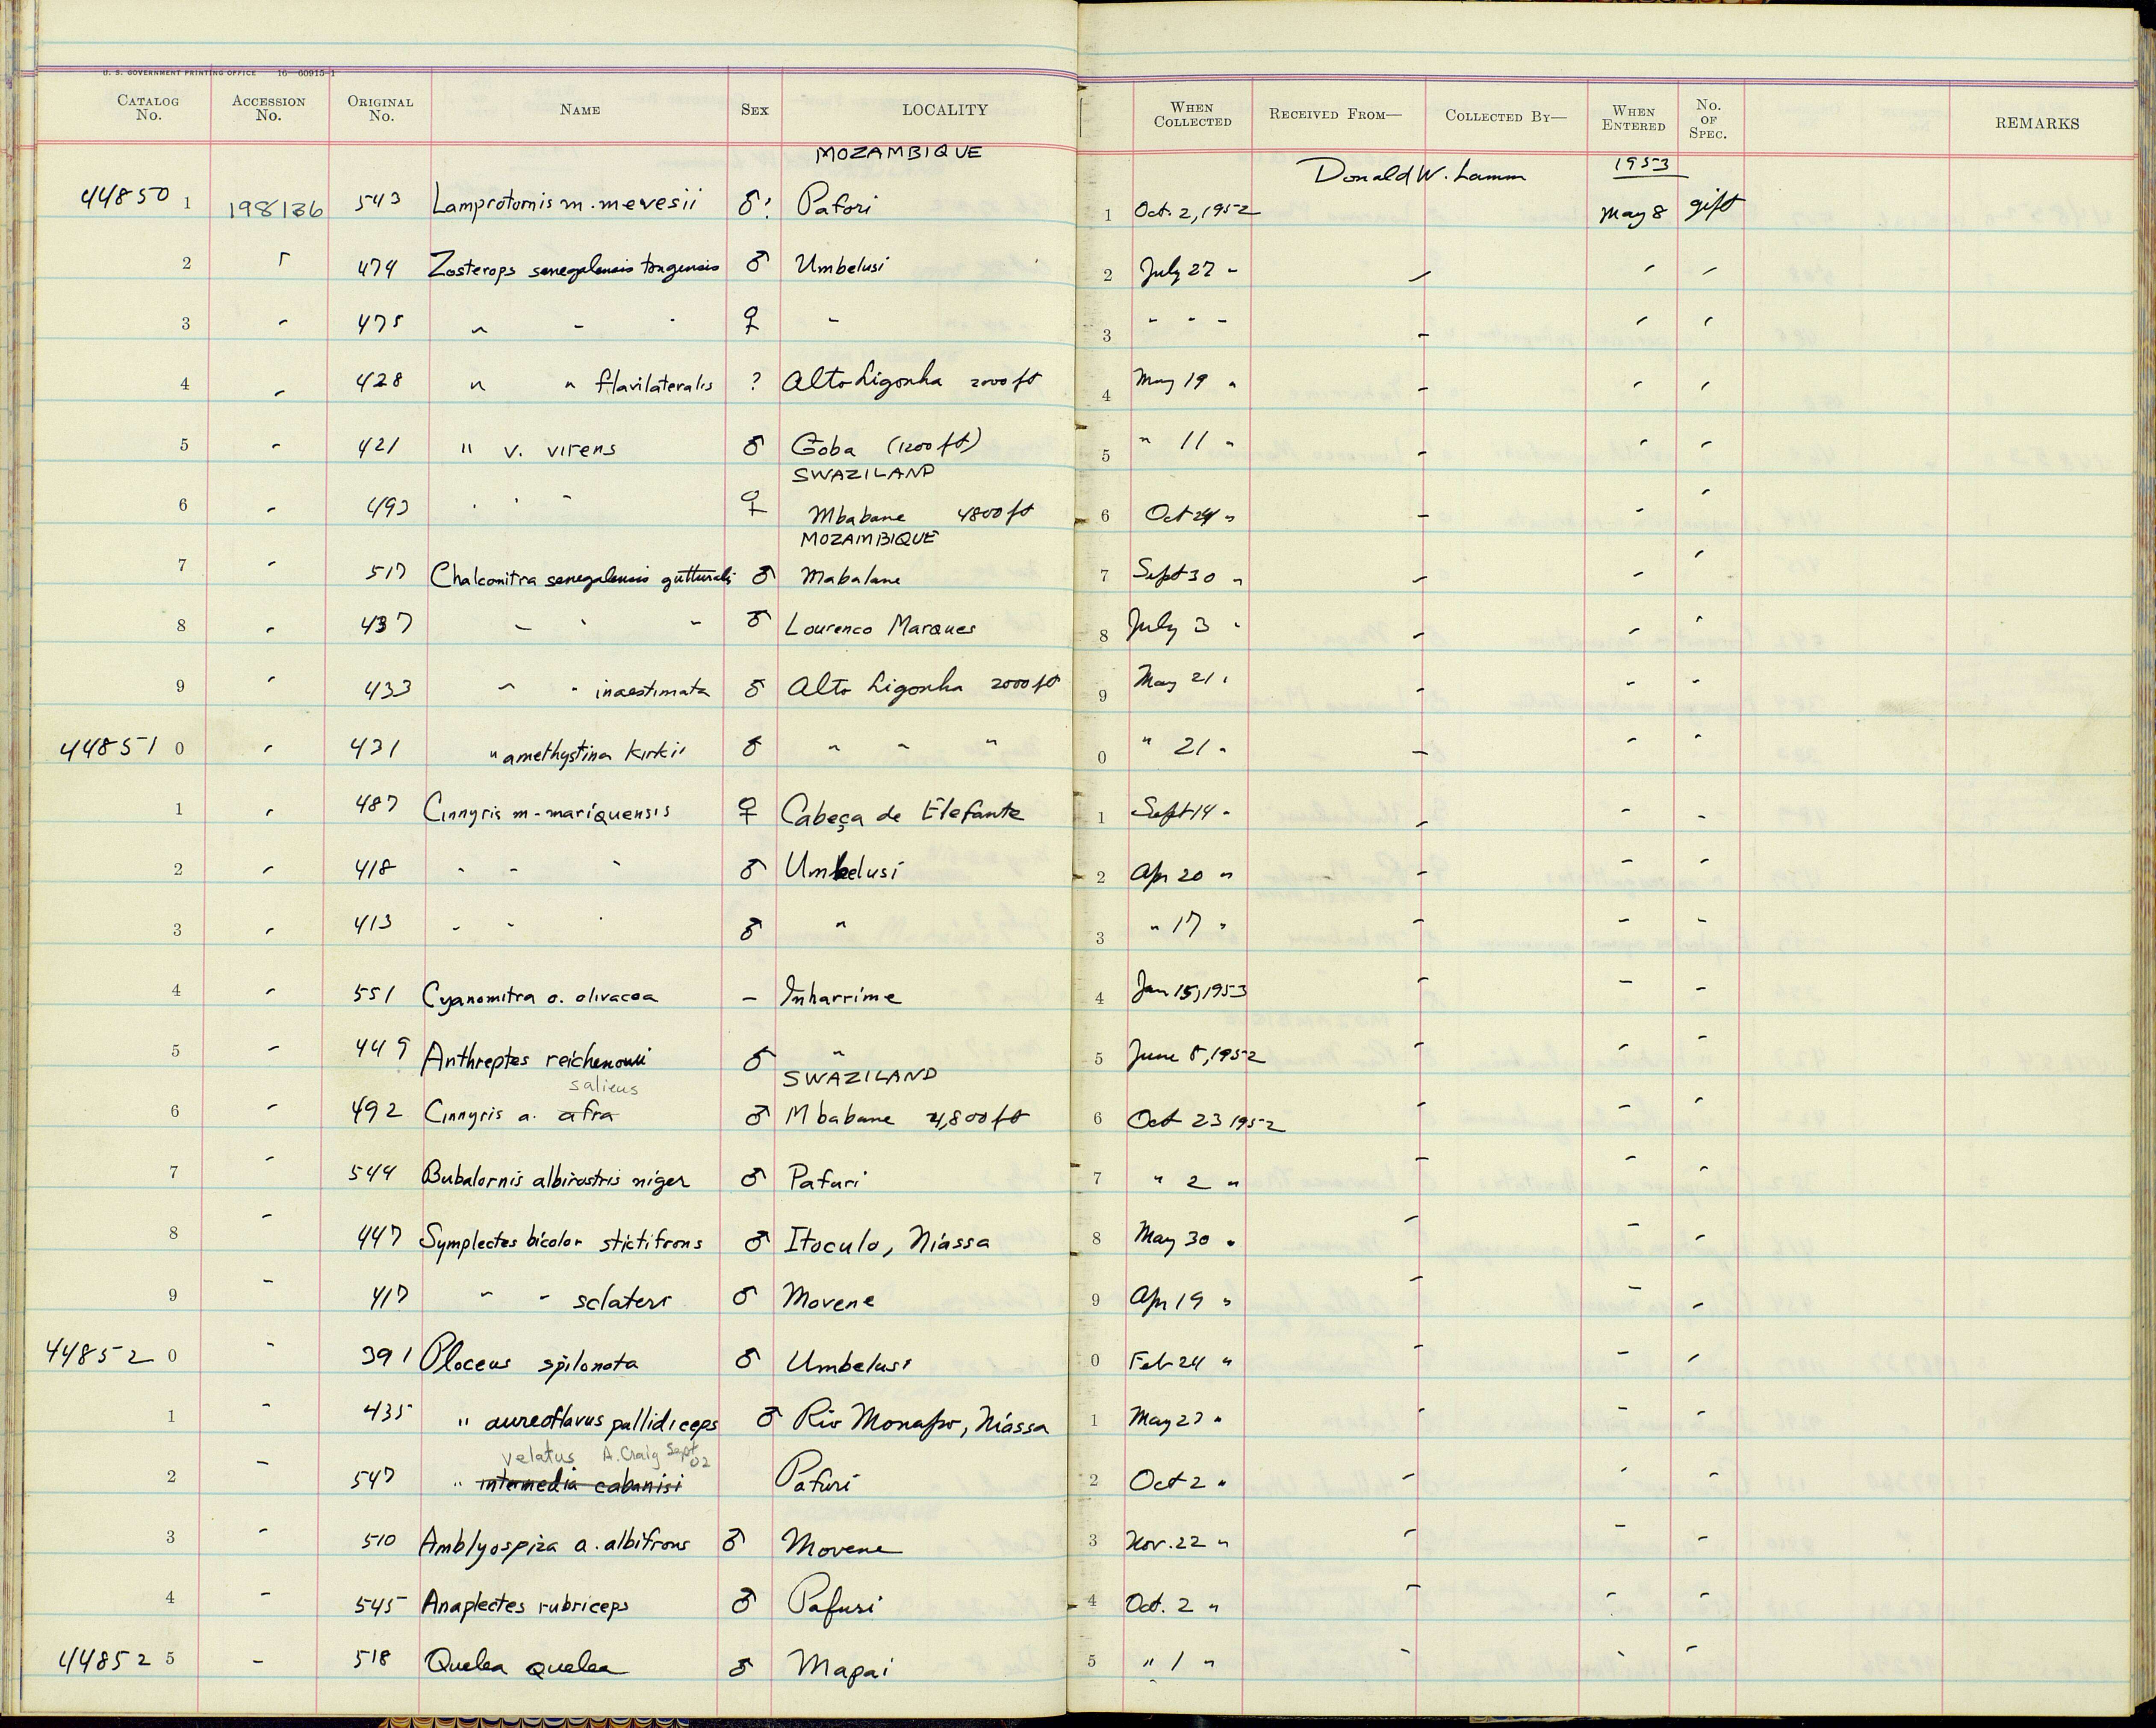 U. S. GOVERNMENT PRINTING OFFICE 16—60915-1
CATALOG No. ACCESSION No. ORIGINAL No. NAME SEX LOCALITY WHEN COLLECTED RECEIVED FROM— COLLECTED BY— WHEN ENTERED No. OF SPEC. REMARKS
MOZAMBIQUE Donald W. Lamm 1953
44850 1 198136 543 Lamprotornis m. mevesii ♂? Pafori 1 Oct. 2, 1952 May 8 gift
2 " 474 Zosterops senegalensis tongensis ♂ Umbelusi 2 July 27 " " " "
3 " 475 " " " ♀ " 3 " " " " " "
4 " 428 " " flavilateralis ? Alto Ligonha 2000 ft 4 May 19 " " " "
5 " 421 " v. virens ♂ Goba (1200 ft) 5 " 11 " " " "
SWAZILAND
6 " 493 " " " ♀ Mbabane 4800 ft 6 Oct 24 " " " "
MOZAMBIQUE
7 " 517 Chalcomitra senegalensis gutturalis ♂ Mabalane 7 Sept 30 " " " "
8 " 437 " " " ♂ Lourenco Marques 8 July 3 " " " "
9 " 433 " " inaestimata ♂ Alto Ligonha 2000 ft 9 May 21 " " " "
44851 0 " 431 " amethystina kirkii ♂ " " " 0 " 21 " " " "
1 " 487 Cinnyris m. mariquensis ♀ Cabeça de Elefante 1 Sept 14 " " " "
2 " 418 " " " ♂ Umbelusi 2 Apr 20 " " " "
3 " 413 " " " ♂ " 3 " 17 " " " "
4 " 551 Cyanomitra o. olivacea - Inharrime 4 Jan 15, 1953 " " "
5 " 449 Anthreptes reichenowi ♂ " 5 June 8, 1952 " " "
saliens SWAZILAND
6 " 492 Cinnyris a. afra ♂ Mbabane 4,800 ft 6 Oct 23 1952 " " "
7 " 544 Bubalornis albirostris niger ♂ Pafuri 7 " 2 " " " "
8 " 447 Symplectes bicolor stictifrons ♂ Itoculo, Niassa 8 May 30 " " " "
9 " 417 " " sclateri ♂ Movene 9 Apr 19 " " " "
44852 0 " 391 Ploceus spilonota ♂ Umbelusi 0 Feb 24 " " " "
1 " 435 " aureoflavus pallidiceps ♂ Rio Monapo, Niassa 1 May 27 " " " "
velatus A. Craig Sept 02
2 " 547 " intermedia cabanisi Pafuri 2 Oct 2 " " " "
3 " 510 Amblyospiza a. albifrons ♂ Movene 3 Nov. 22 " " " "
4 " 545 Anaplectes rubriceps ♂ Pafuri 4 Oct. 2 " " " "
44852 5 " 518 Quelea quelea ♂ Mapai 5 " 1 " " " "